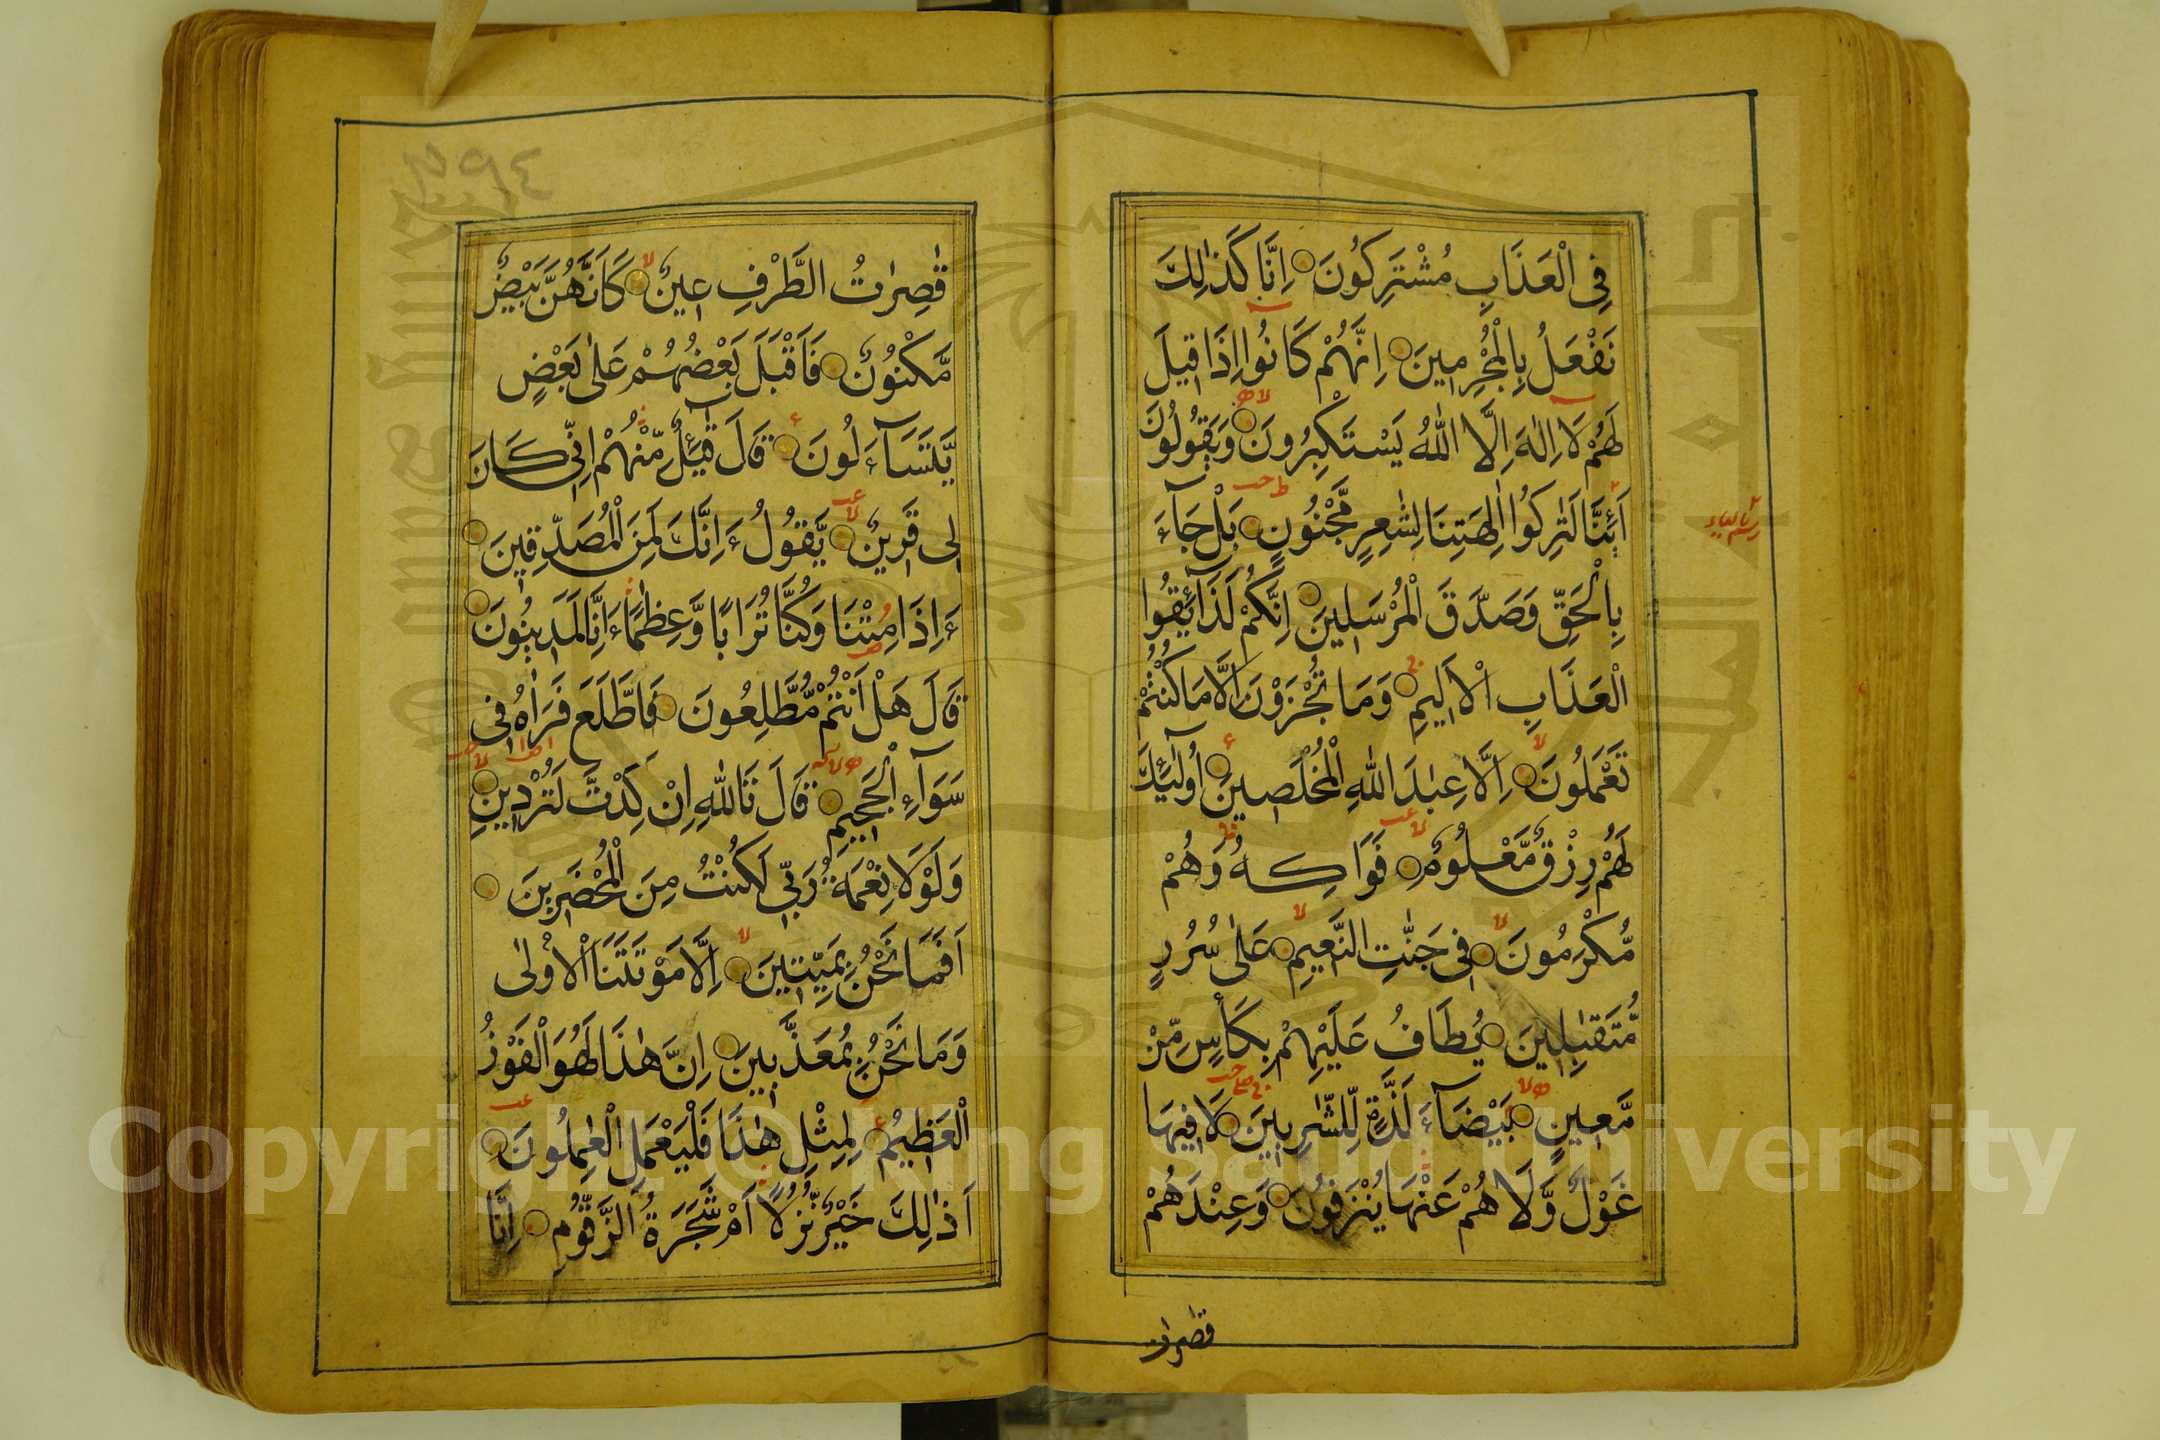 فِى الْعَذَابِ مُشْتَرِكُونَ اِنَّا كَذٰلِكَ
نَفْعَلُ بِالْمُجْرِمِينَ اِنَّهُمْ كَانُوا اِذَا قِيلَ
لَهُمْ لَا اِلٰهَ اِلَّا اللّٰهُ يَسْتَكْبِرُونَ وَيَقُولُونَ
اَئِنَّا لَتَٰرِكُوا اٰلِهَتِنَا لِشَاعِرٍ مَّجْنُونٍ بَلْ جَآءَ
بِالْحَقِّ وَصَدَّقَ الْمُرْسَلِينَ اِنَّكُمْ لَذَآئِقُوا
الْعَذَابِ الْاَلِيمِ وَمَا تُجْزَوْنَ اِلَّا مَا كُنْتُمْ
تَعْمَلُونَ اِلَّا عِبٰدَ اللّٰهِ الْمُخْلَصِينَ اُولٰٓئِكَ
لَهُمْ رِزْقٌ مَّعْلُومٌ فَوَاكِهُ وَهُمْ
مُّكْرَمُونَ فِى جَنّٰتِ النَّعِيمِ عَلٰى سُرُرٍ
مُّتَقٰبِلِينَ يُطَافُ عَلَيْهِمْ بِكَأْسٍ مِّنْ
مَّعِينٍ بَيْضَآءَ لَذَّةٍ لِّلشّٰرِبِينَ لَا فِيهَا
غَوْلٌ وَّلَا هُمْ عَنْهَا يُنْزَفُونَ وَعِنْدَهُمْ
قٰصِرٰت
٣٩٤
قٰصِرٰتُ الطَّرْفِ عِينٌ كَاَنَّهُنَّ بَيْضٌ
مَّكْنُونٌ فَاَقْبَلَ بَعْضُهُمْ عَلٰى بَعْضٍ
يَّتَسَآءَلُونَ قَالَ قَآئِلٌ مِّنْهُمْ اِنِّى كَانَ
لِى قَرِينٌ يَّقُولُ ءَاِنَّكَ لَمِنَ الْمُصَدِّقِينَ
ءَاِذَا مِتْنَا وَكُنَّا تُرَابًا وَّعِظٰمًا ءَاِنَّا لَمَدِينُونَ
قَالَ هَلْ اَنْتُمْ مُّطَّلِعُونَ فَاطَّلَعَ فَرَاٰهُ فِى
سَوَآءِ الْجَحِيمِ قَالَ تَاللّٰهِ اِنْ كِدْتَّ لَتُرْدِينِ
وَلَوْلَا نِعْمَةُ رَبِّى لَكُنْتُ مِنَ الْمُحْضَرِينَ
اَفَمَا نَحْنُ بِمَيِّتِينَ اِلَّا مَوْتَتَنَا الْاُوْلٰى
وَمَا نَحْنُ بِمُعَذَّبِينَ اِنَّ هٰذَا لَهُوَ الْفَوْزُ
الْعَظِيمُ لِمِثْلِ هٰذَا فَلْيَعْمَلِ الْعٰمِلُونَ
اَذٰلِكَ خَيْرٌ نُّزُلًا اَمْ شَجَرَةُ الزَّقُّومِ اِنَّا
Copyright © King Saud University